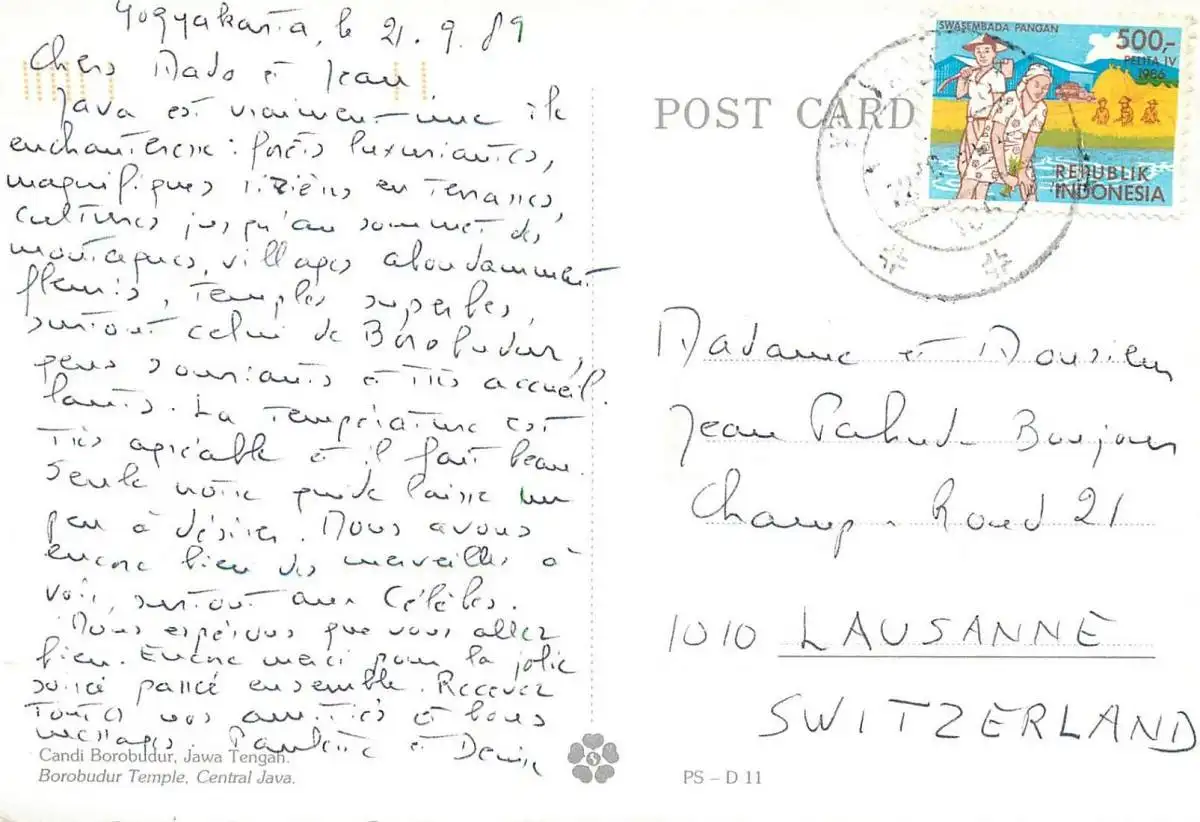 Yogyakarta, le 21.9.89
Chers Mado et Jean,
Java est vraiment une île
enchanteresse : forêts luxuriantes,
magnifiques rizières en terrasses,
cultures jusqu'au sommet des
montagnes, villages abondamment
fleuris, temples superbes,
surtout celui de Borobudur,
gens souriants et très accueil-
lants. La température est
très agréable et il fait beau.
Seule notre guide laisse un
peu à désirer. Nous avons
encore bien des merveilles à
voir, surtout aux Célèbes.
Nous espérons que vous allez
bien. Encore merci pour la jolie
soirée passée ensemble. Recevez
toutes nos amitiés et bons
messages. Paulette et Denise
Candi Borobudur, Jawa Tengah.
Borobudur Temple, Central Java.
POST CARD
SWASEMBADA PANGAN
500,-
PELITA IV
1986
REPUBLIK
INDONESIA
Madame et Monsieur
Jean Pahud-Bonjour
Champ-Rond 21
1010 LAUSANNE
SWITZERLAND
PS – D 11